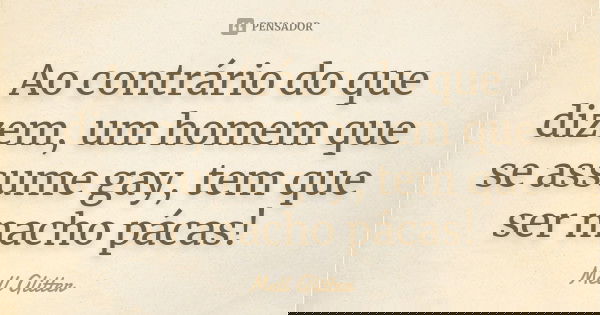 PENSADOR
Ao contrário do que
dizem, um homem que
se assume gay, tem que
ser macho pácas!
Mell Glitter